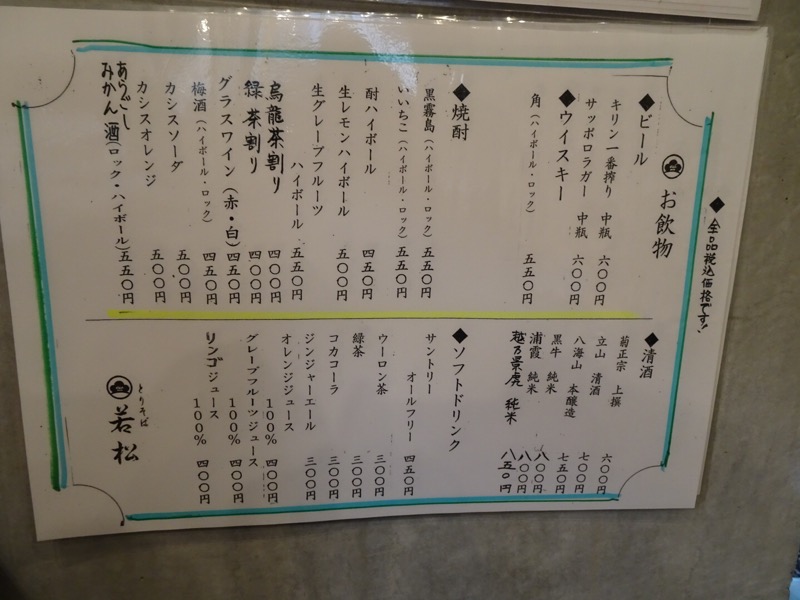 ◆全品税込価格です!
お飲物
◆ビール
キリン一番搾り 中瓶 六〇〇円
サッポロラガー 中瓶 六〇〇円
◆ウイスキー
角(ハイボール・ロック) 五五〇円
◆焼酎
黒霧島(ハイボール・ロック) 五五〇円
いいちこ(ハイボール・ロック) 五五〇円
酎ハイボール 四五〇円
生レモンハイボール 五〇〇円
生グレープフルーツ
ハイボール 五五〇円
烏龍茶割り 四〇〇円
緑茶割り 四〇〇円
グラスワイン(赤・白) 四五〇円
梅酒(ハイボール・ロック) 四五〇円
カシスソーダ 五〇〇円
カシスオレンジ 五〇〇円
あらごし
みかん酒(ロック・ハイボール) 五五〇円
◆清酒
菊正宗 上撰 六〇〇円
立山 清酒 七〇〇円
八海山 本醸造 七五〇円
黒牛 純米 八〇〇円
浦霞 純米 八〇〇円
越乃景虎 純米 八五〇円
◆ソフトドリンク
サントリー
オールフリー 四五〇円
ウーロン茶 三〇〇円
緑茶 三〇〇円
コカコーラ 三〇〇円
ジンジャーエール 三〇〇円
オレンジジュース
100% 四〇〇円
グレープフルーツジュース
100% 四〇〇円
リンゴジュース
100% 四〇〇円
とりそば
若松